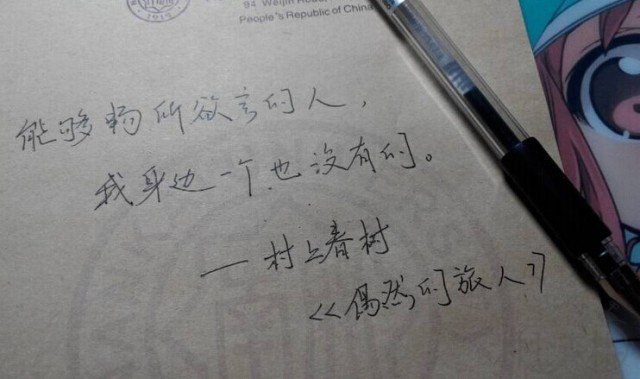 1919
94 Weijin Road,
People's Republic of China
能够畅所欲言的人，
我身边一个也没有的。
——村上春树
《偶然的旅人》